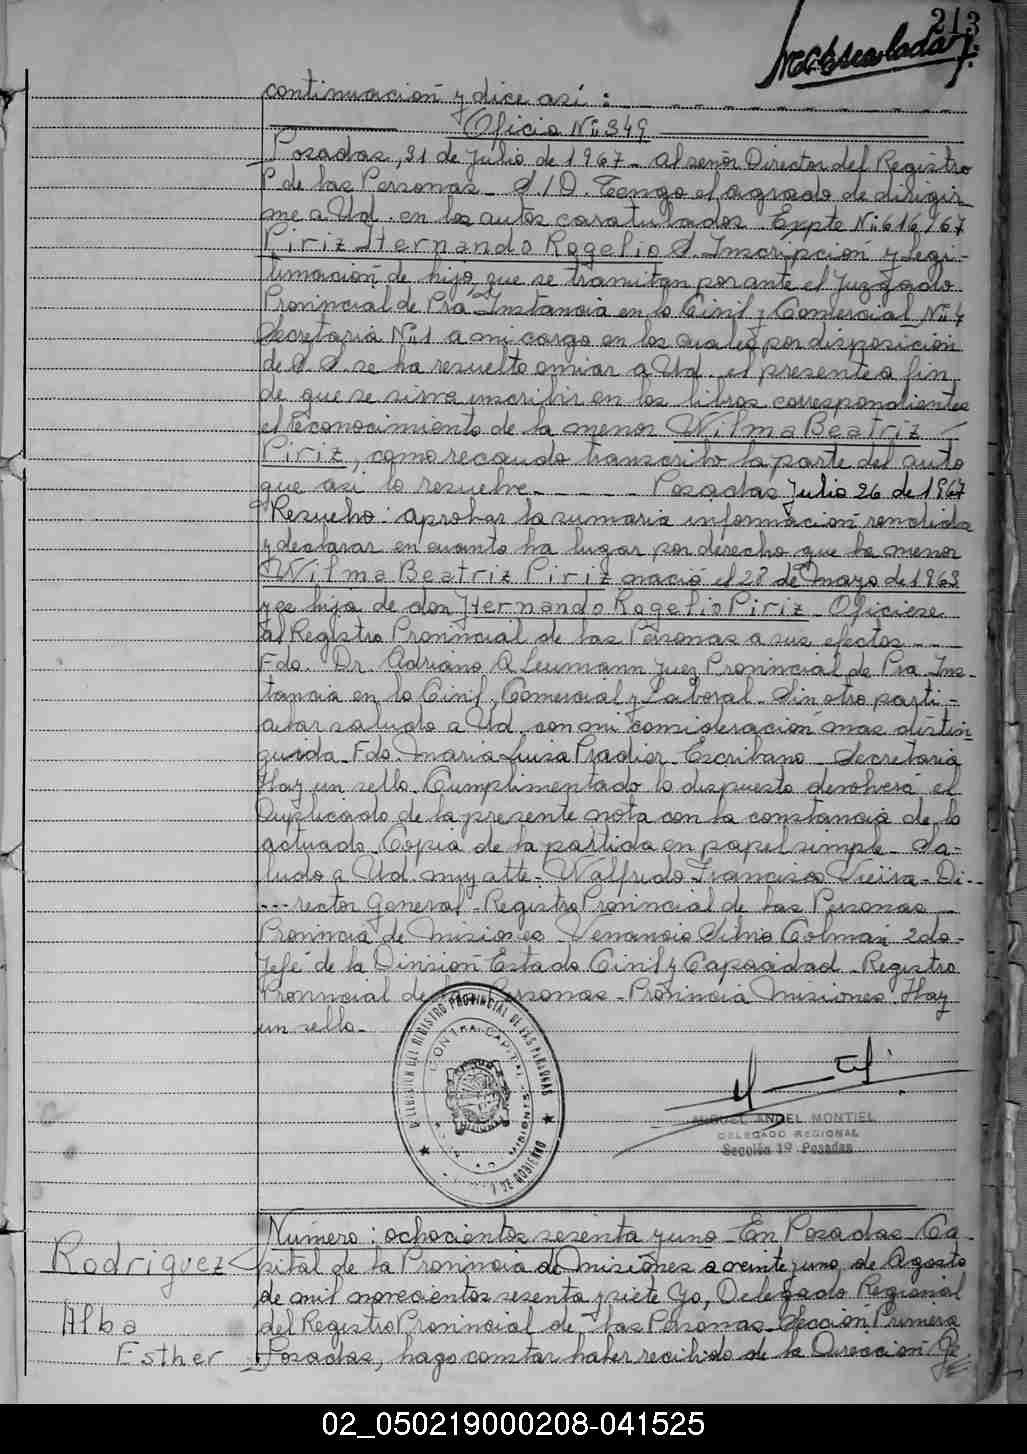 213
continuación y dice así : _ _ _ _ _ _ _ _ _
Oficio Nº 349
Posadas, 31 de Julio de 1967 - al señor Director del Registro
P de las Personas - S/D. Tengo el agrado de dirigir
me a Ud. en los autos caratulados. Expte Nº 616/67
Piriz Hernando Rogelio S. Inscripción y legi-
timación de hijo que se tramitan por ante el Juzgado
Provincial de Pra Instancia en lo Civil y Comercial Nº 4
Secretaria Nº 1 a mi cargo en los cuales por disposición
de S. S. se ha resuelto enviar a Ud. el presente a fin
de que se sirva inscribir en los libros correspondientes
el Reconocimiento de la menor Wilma Beatriz
Piriz, como recaudo transcribo la parte del auto
que asi lo resuelve - - - - - Posadas Julio 26 de 1967
Resuelvo: aprobar la sumaria información rendida
y declarar en cuanto ha lugar por derecho que la menor
Wilma Beatriz Piriz nació el 28 de Mayo de 1963
y es hija de don Hernando Rogelio Piriz - Oficiese
al Registro Provincial de las Personas a sus efectos - - -
Fdo. Dr. Adriano A Leumann Juez Provincial de Pra Ins-
tancia en lo Civil, Comercial y Laboral - Sin otro parti-
cular saludo a Ud. con mi consideración mas distin
guida - Fdo. Maria Luisa Pradier Escribano - Secretaria
Hay un sello. Cumplimentado lo dispuesto devolverá el
Duplicado de la presente nota con la constancia de lo
actuado. Copia de la partida en papel simple - Sa-
ludo a Ud. muy atte - Walfredo Francisco Vieira - Di--
--- rector General - Registro Provincial de las Personas -
Provincia de Misiones - Venancio Silvio Colman 2do-
Jefe de la División Estado Civil y Capacidad - Registro
Provincial de las Personas - Provincia Misiones. Hay
un sello -
DEL REGISTRO PROVINCIAL DE LAS PERSONAS
MISIONES
DE GOBIERNO
MIGUEL ANGEL MONTIEL
DELEGADO REGIONAL
Sección 1º Posadas
Número: ochocientos sesenta y uno - En Posadas Ca-
Rodriguez
pital de la Provincia de Misiones a veinte y uno de Agosto
de mil novecientos sesenta y siete Yo, Delegado Regional
Alba
del Registro Provincial de las Personas - Sección Primera
Esther
Posadas, hago constar haber recibido de la Dirección Ge
02_050219000208-041525